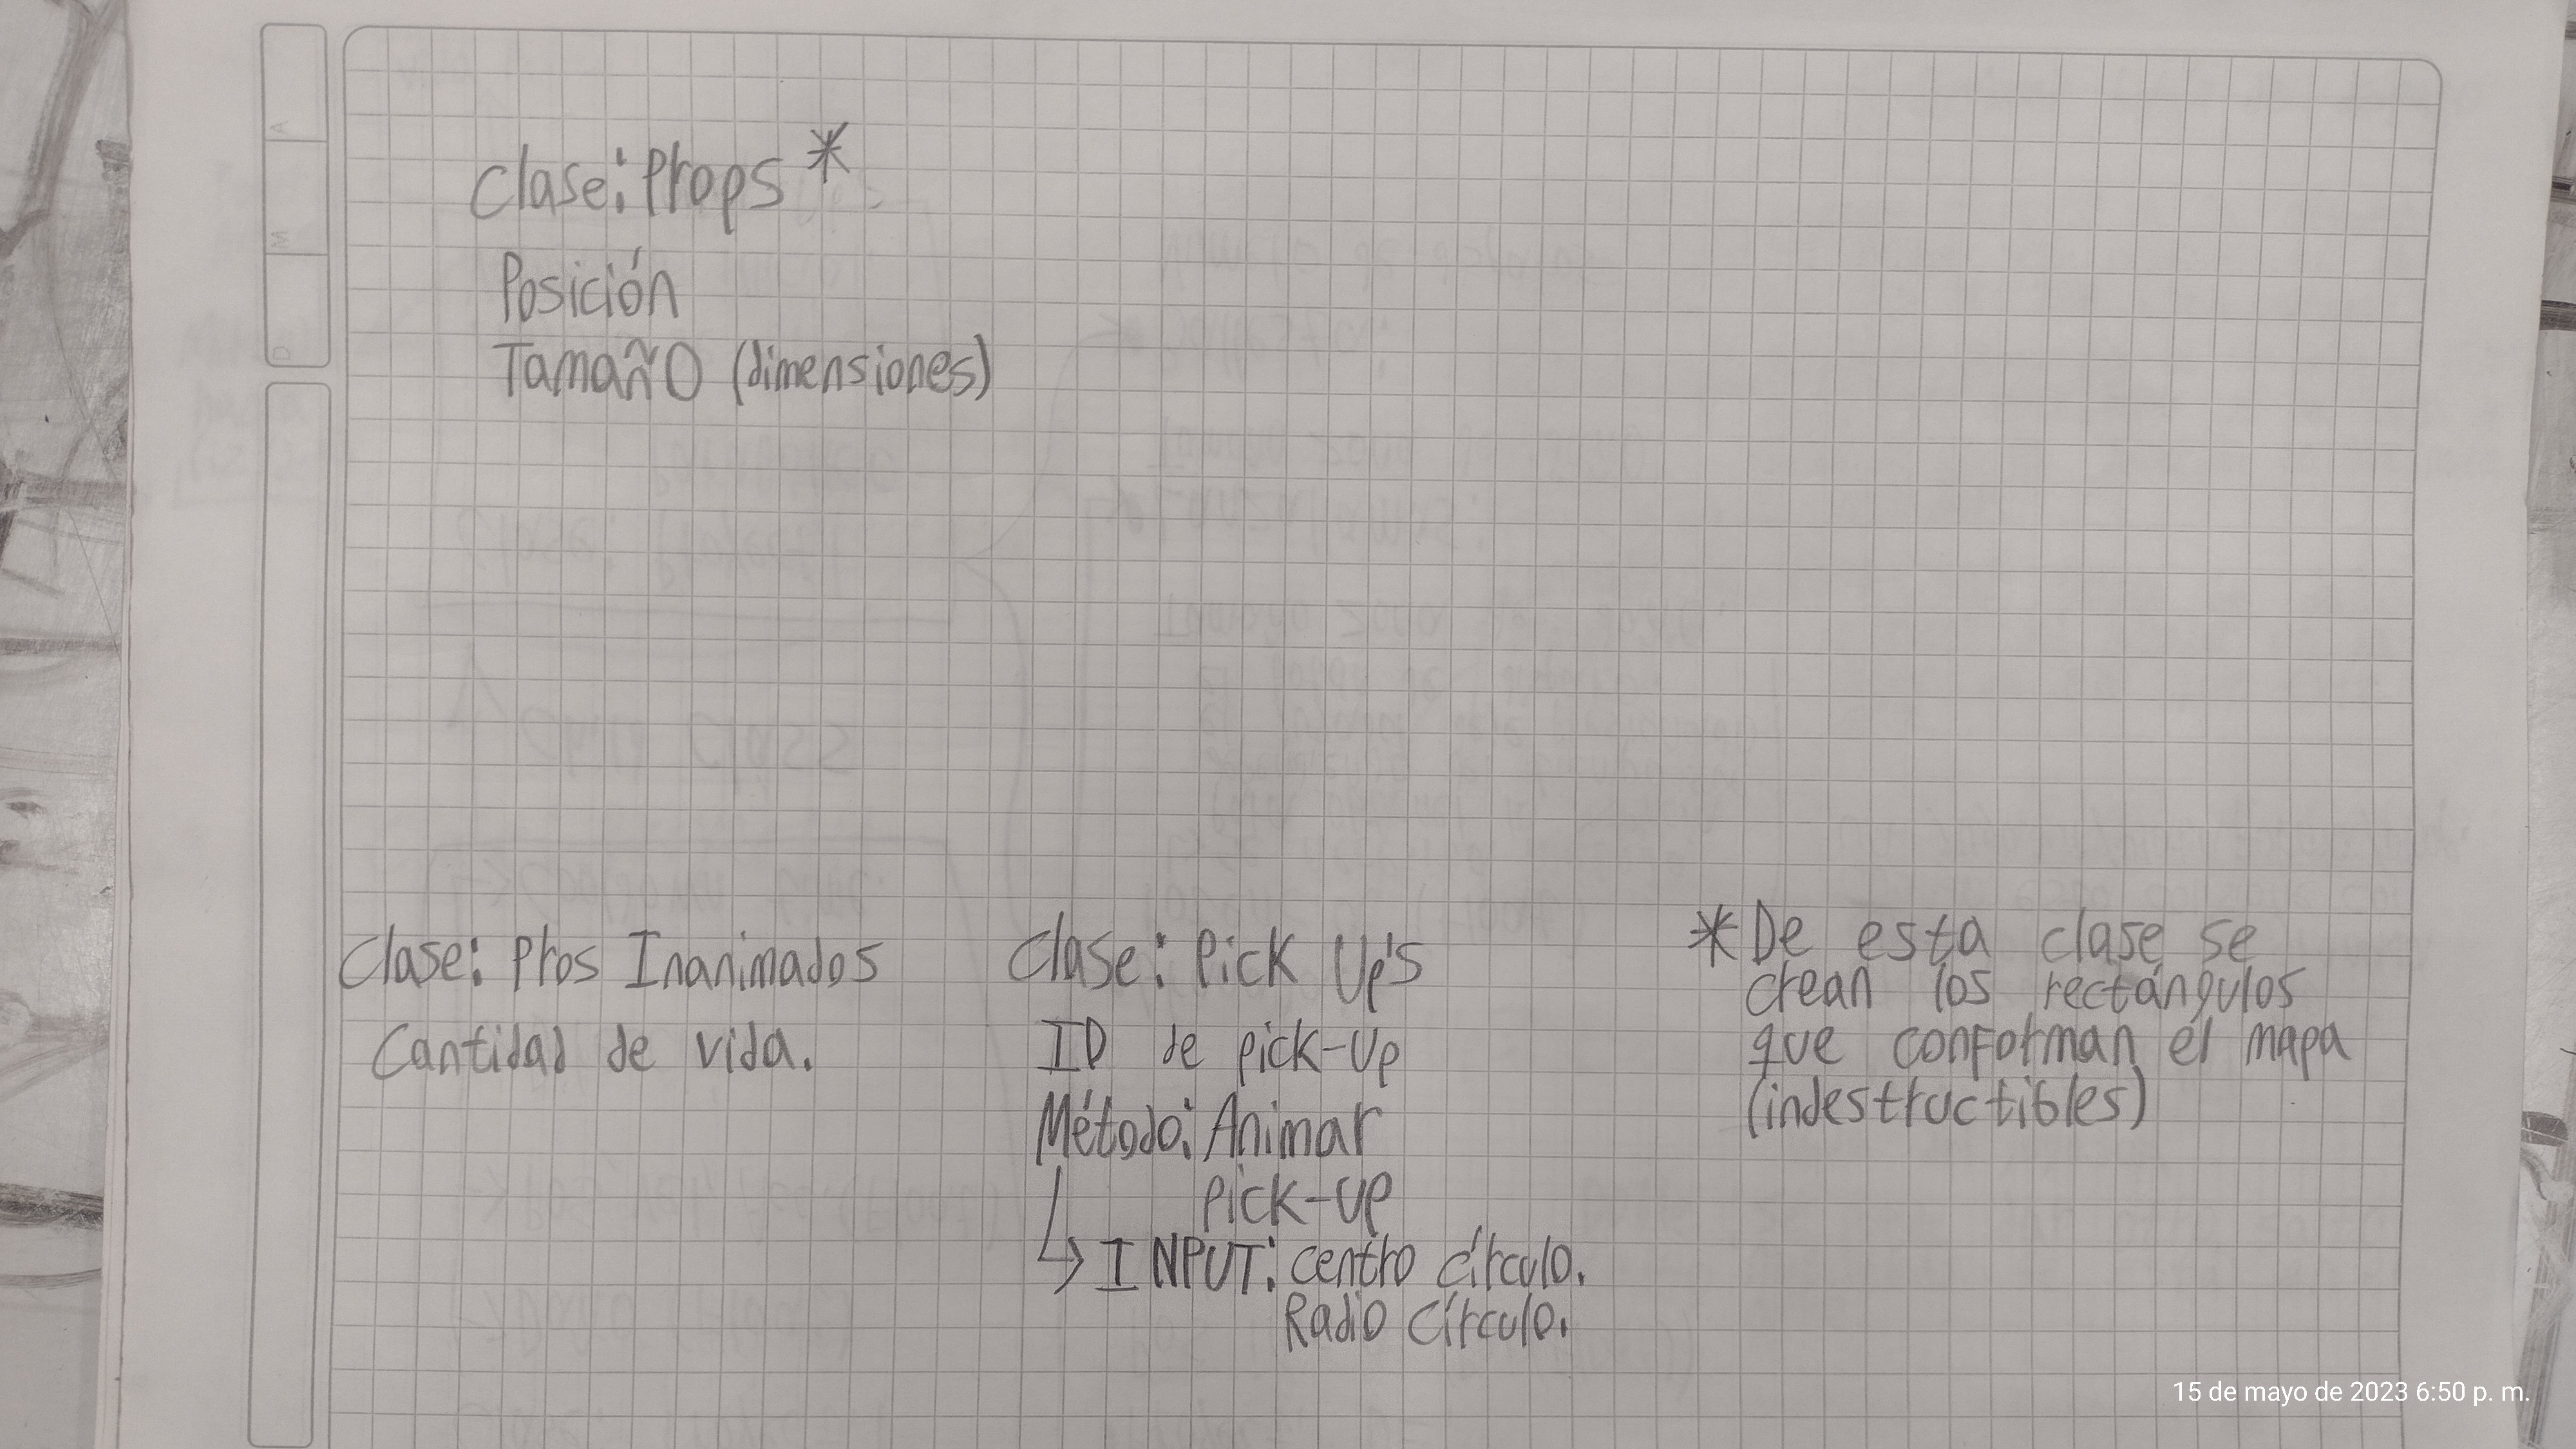 Clase: Props *
Posición
Tamaño (dimensiones)
Clase: Pros Inanimados
Cantidad de vida.
Clase: Pick Up's
ID de pick-Up
Método: Animar
pick-up
↳ INPUT: centro círculo.
Radio Círculo.
* De esta clase se
crean los rectángulos
que conforman el mapa
(indestructibles)
A
M
D
15 de mayo de 2023 6:50 p. m.